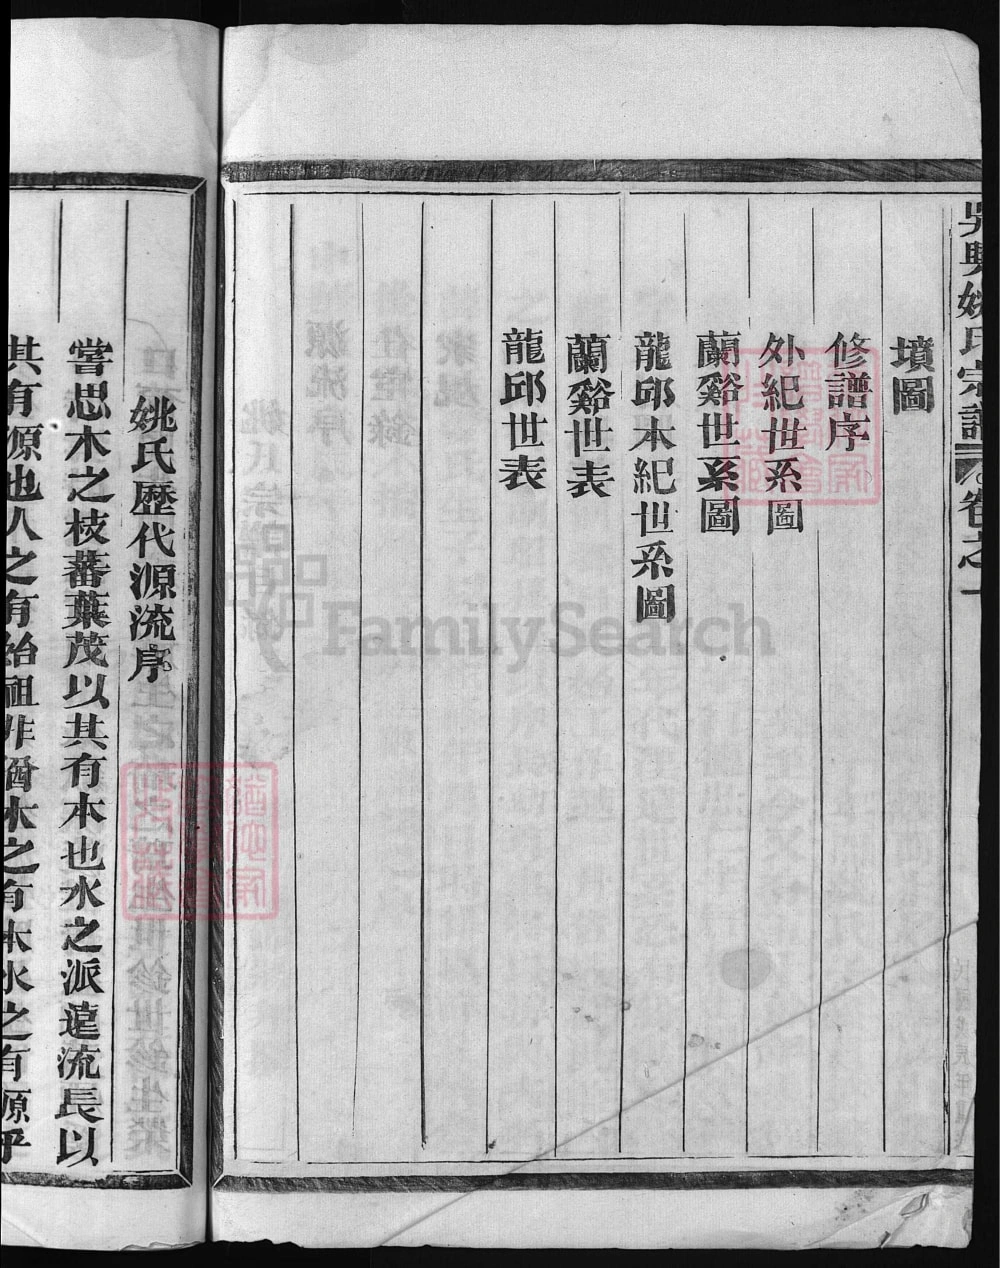 吳興姚氏宗譜 卷之一
墳圖
修譜序
外紀世系圖
蘭谿世系圖
龍邱本紀世系圖
蘭谿世表
龍邱世表
姚氏歷代源流序
嘗思木之枝蕃葉茂以其有本也水之派遠流長以
其有源也人之有始祖非猶木之有本水之有源乎
FamilySearch